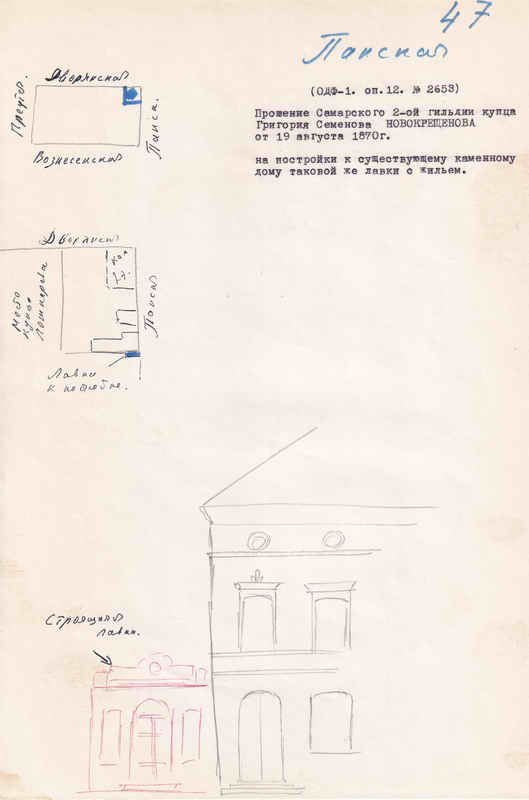 47
Панская
(ОДФ-1. оп.12. № 2653)
Прошение Самарского 2-ой гильдии купца
Григория Семенова НОВОКРЕЩЕНОВА
от 19 августа 1870г.
на постройки к существующему каменному
дому таковой же лавки с жильем.
Дворянская
Панск.
Вознесенская
Дворянская
Место
купца
Панская
Лавки
к постройке.
Строящаяся
лавка.